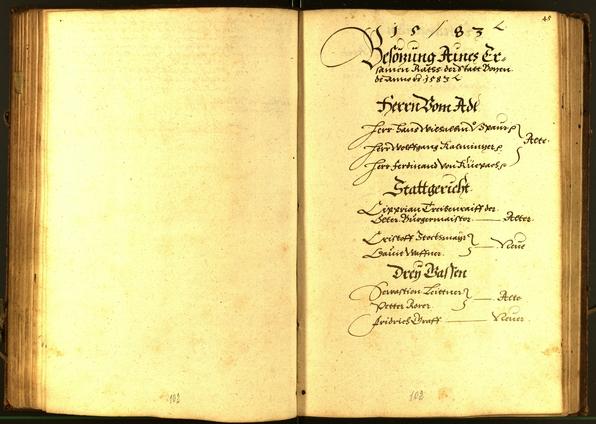 45
1583
Besönung Aines Er-
samen Raths der Statt Bozen
de anno 1583
Herrn Vom Adl
Herr Hans Wilhelm V Spaur
Herr Wolffgang Kalminger
Alte
Herr Ferdinand von Küepach
Stattgericht
Ciprian Treitenraiff der
Zeter Burgermaister — Alter.
Cristoff Stockmayr
Davit Waffner Neue
Drey Gassen
Sewastion Leittner
Petter Rorer — Alte
Fridrich Graff — Neuer.
102
102